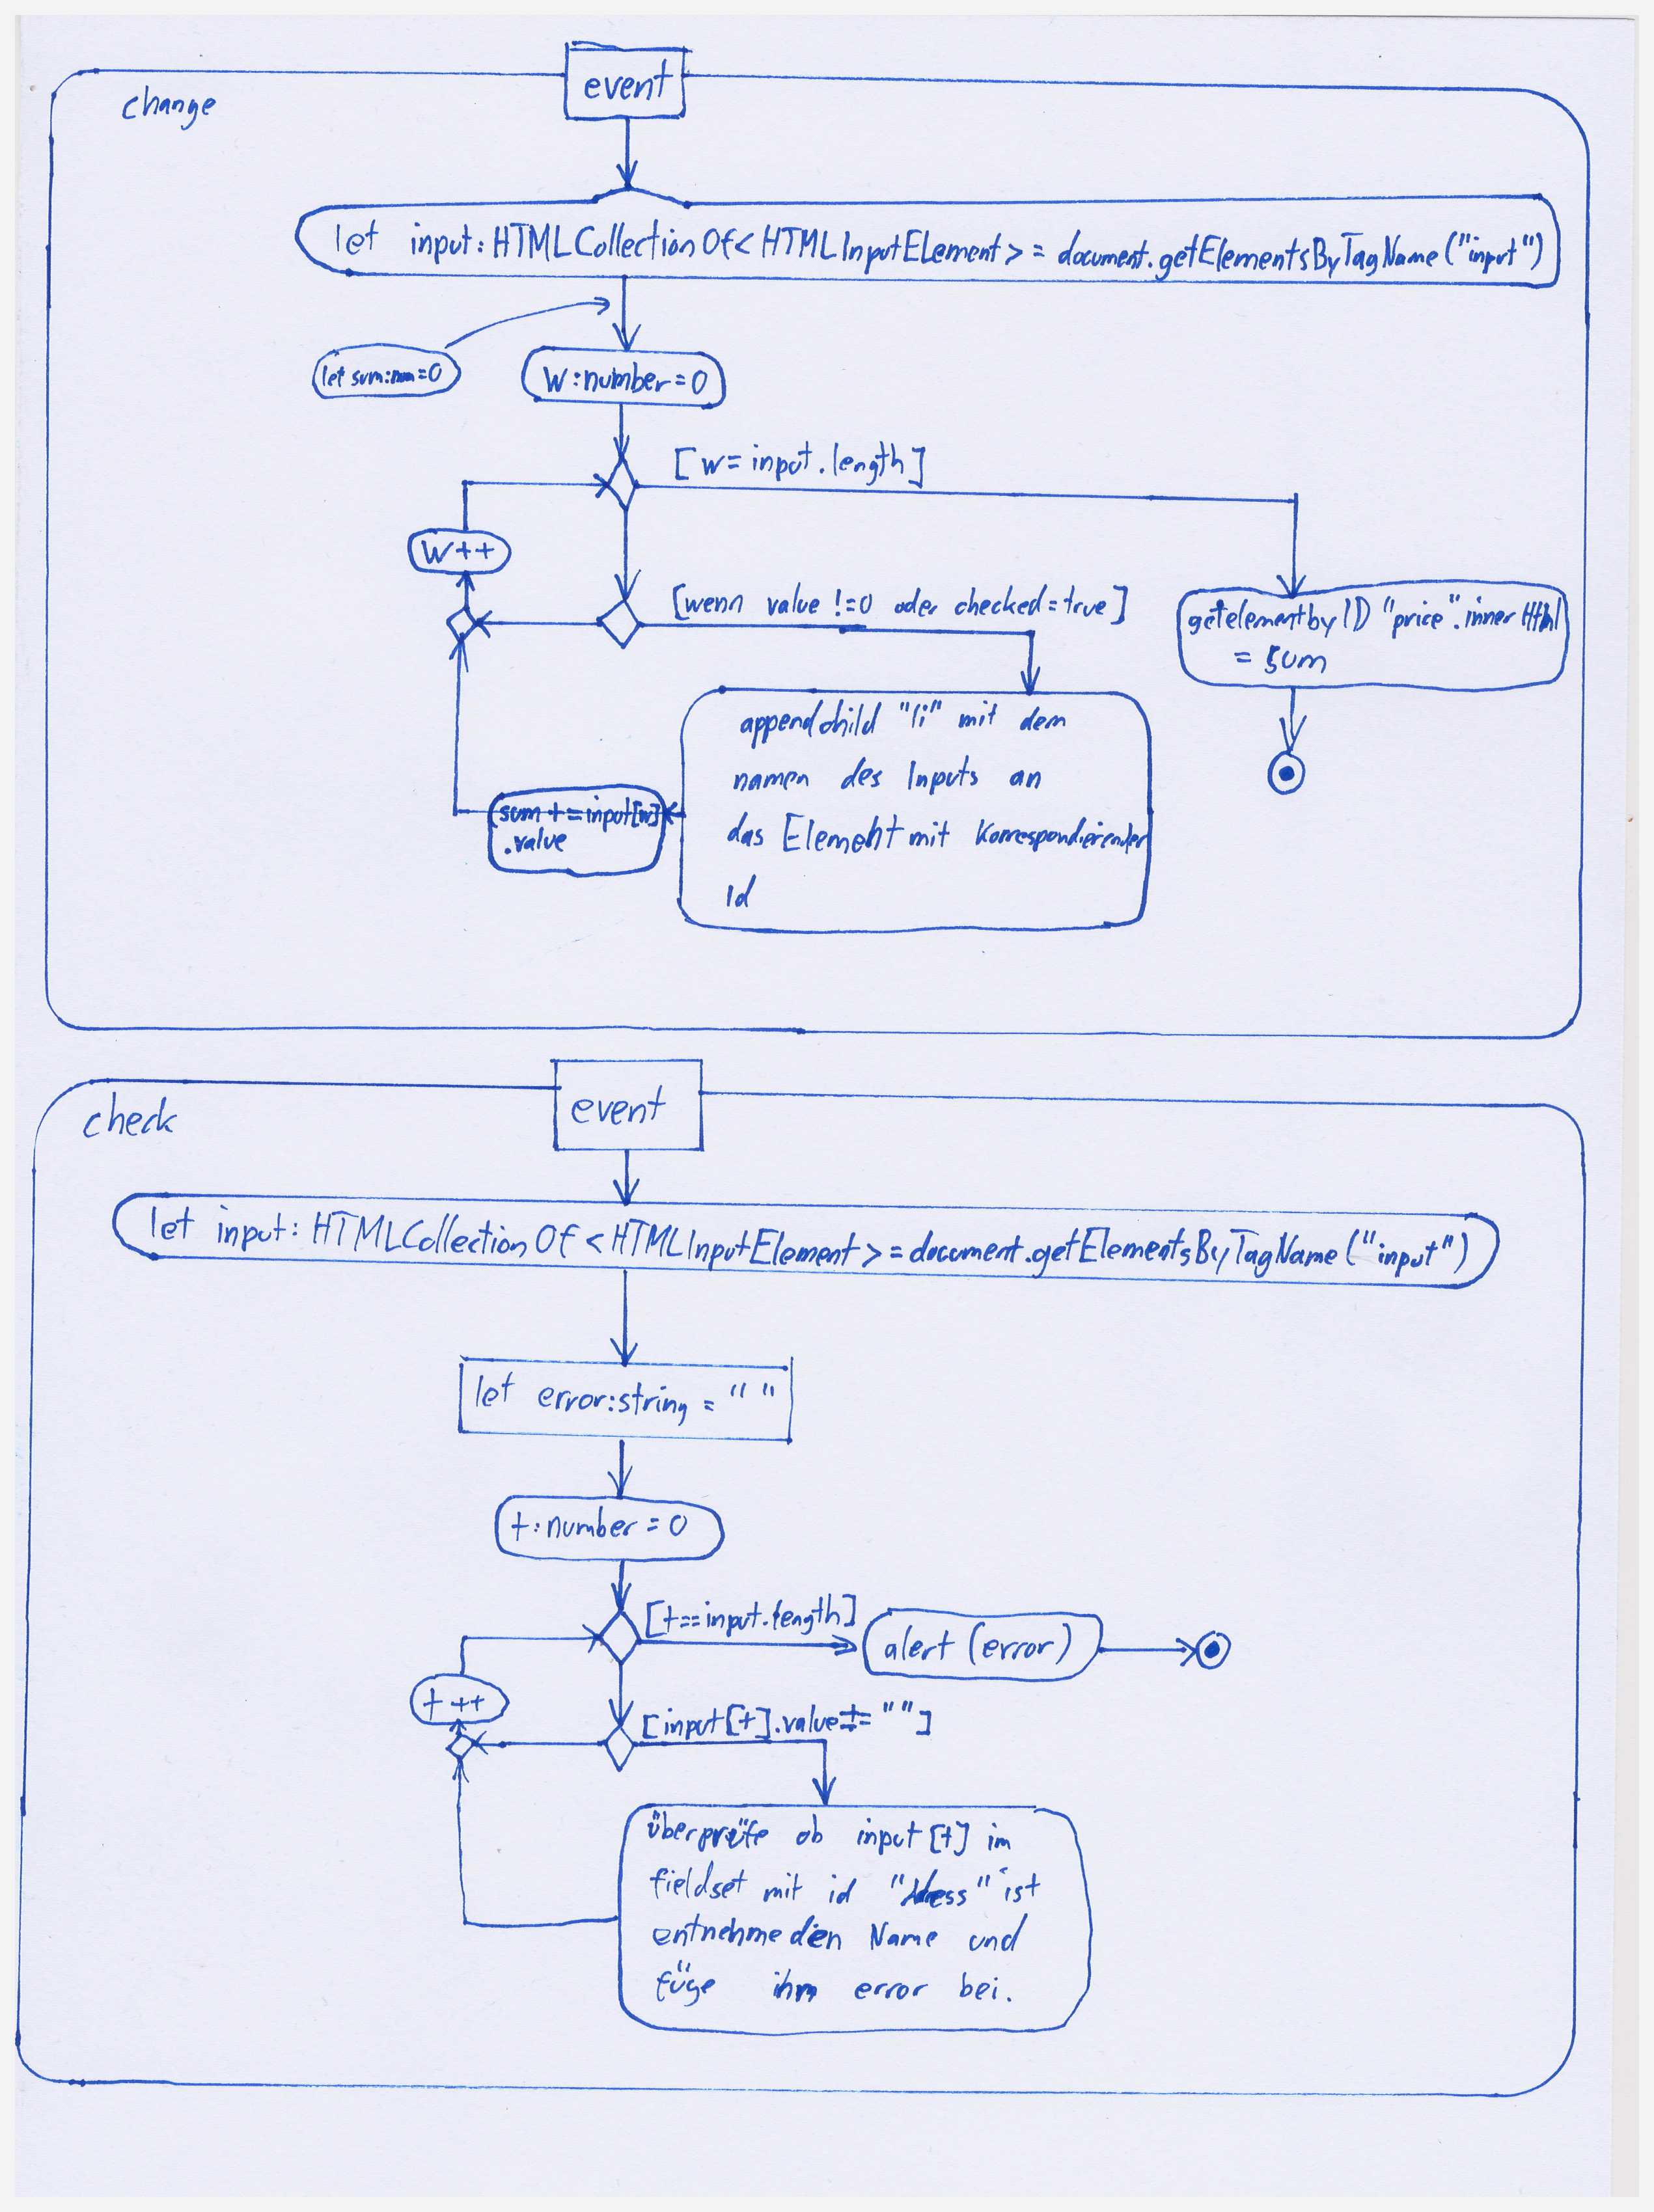 event
change
let input:HTMLCollectionOf<HTMLInputELement>= document.getElementsByTagName("input")
let sum:num=0
W:number=0
[w=input.length]
W++
[wenn value !=0 oder checked=true]
getelementbyID "price".innerHtml
= sum
appendchild "li" mit dem
namen des Inputs an
das Element mit Korrespondierender
Id
sum+=input[w]
.value
event
check
let input: HTMLCollectionOf<HTMLInputElement>=document.getElementsByTagName("input")
let error:string=" "
t:number=0
[t==input.length]
alert(error)
t++
[input[t].value == ""]
überprüfe ob input[t] im
fieldset mit id "Adress" ist
entnehme den Name und
füge ihm error bei.